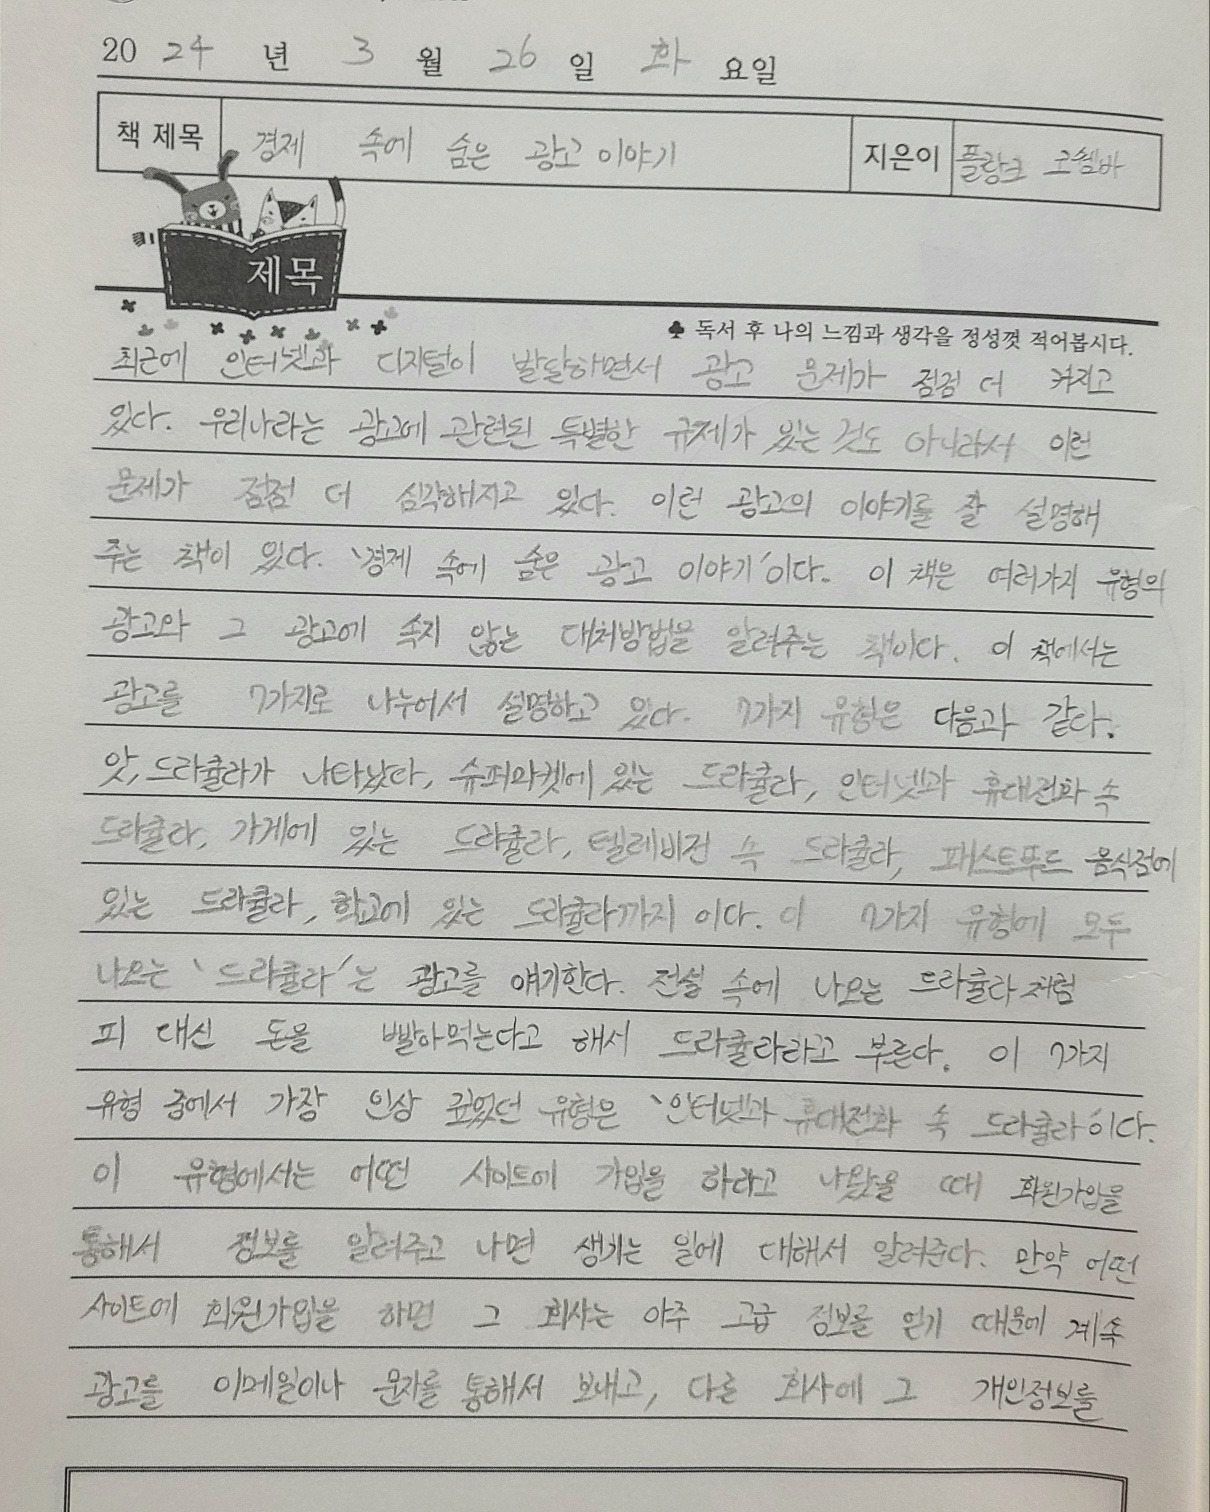 2024 년 3 월 26 일 화 요일
책 제목 경제 속에 숨은 광고 이야기 지은이 플랑크 코쉠바
제목
♣ 독서 후 나의 느낌과 생각을 정성껏 적어봅시다.
최근에 인터넷과 디지털이 발달하면서 광고 문제가 점점 더 커지고
있다. 우리나라는 광고에 관련된 특별한 규제가 있는 것도 아니라서 이런
문제가 점점 더 심각해지고 있다. 이런 광고의 이야기를 잘 설명해
주는 책이 있다. '경제 속에 숨은 광고 이야기'이다. 이 책은 여러가지 유형의
광고와 그 광고에 속지 않는 대처방법을 알려주는 책이다. 이 책에서는
광고를 7가지로 나누어서 설명하고 있다. 7가지 유형은 다음과 같다.
앗, 드라큘라가 나타났다, 슈퍼마켓에 있는 드라큘라, 인터넷과 휴대전화 속
드라큘라, 가게에 있는 드라큘라, 텔레비전 속 드라큘라, 패스트푸드 음식점에
있는 드라큘라, 학교에 있는 드라큘라까지 이다. 이 7가지 유형에 모두
나오는 '드라큘라'는 광고를 얘기한다. 전설 속에 나오는 드라큘라처럼
피 대신 돈을 빨아먹는다고 해서 드라큘라라고 부른다. 이 7가지
유형 중에서 가장 인상 깊었던 유형은 '인터넷과 휴대전화 속 드라큘라'이다.
이 유형에서는 어떤 사이트에 가입을 하라고 나왔을 때 회원가입을
통해서 정보를 알려주고 나면 생기는 일에 대해서 알려준다. 만약 어떤
사이트에 회원가입을 하면 그 회사는 아주 고급 정보를 얻기 때문에 계속
광고를 이메일이나 문자를 통해서 보내고, 다른 회사에 그 개인정보를